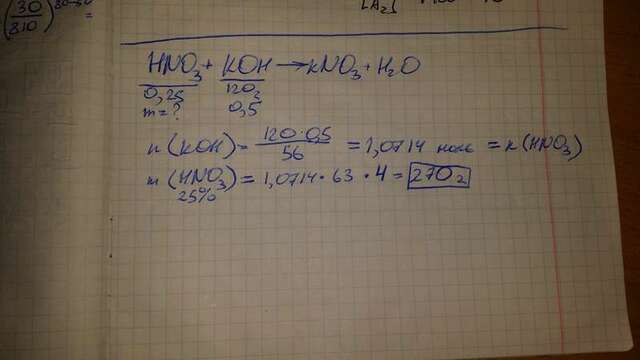 (30/810)^80-50 =
HNO₃ + KOH → KNO₃ + H₂O
0,25 120г
m=? 0,5
n(KOH) = 120·0,5/56 = 1,0714 моль = n(HNO₃)
m(HNO₃) = 1,0714 · 63 · 4 = 270г
25%